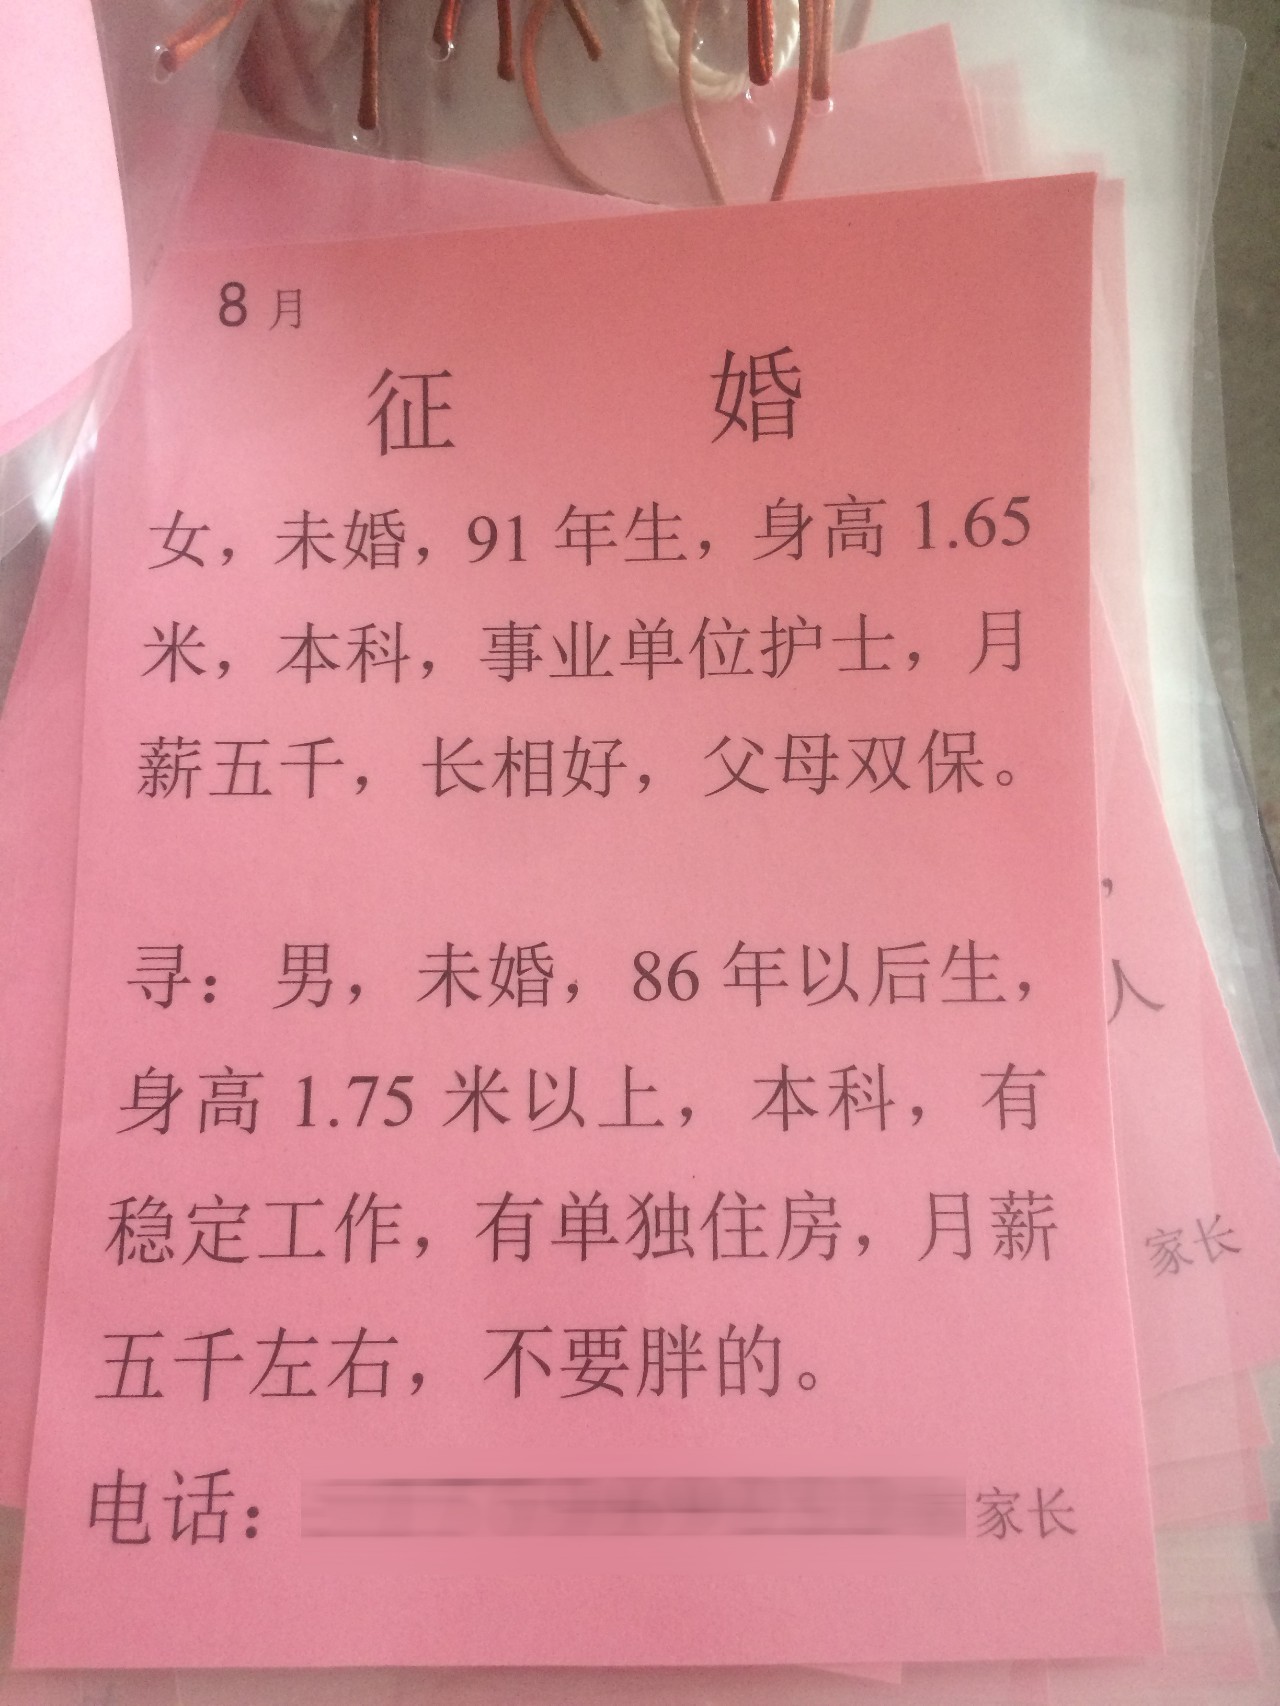 8月
征 婚
女，未婚，91年生，身高1.65
米，本科，事业单位护士，月
薪五千，长相好，父母双保。
寻：男，未婚，86年以后生，
身高1.75米以上，本科，有
稳定工作，有单独住房，月薪
五千左右，不要胖的。
电话： 家长
，
人
家长